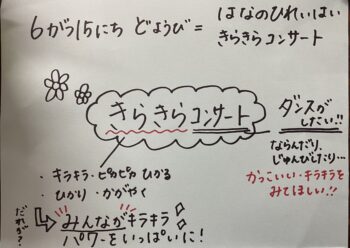 6がつ15にち どようび = はなのひれいはい
きらきらコンサート
きらきらコンサート
ダンスが
したい!!
ならんだり、
じゅんびしたり…
かっこいい・キラキラを
みてほしい!!
・キラキラ・ピカピカ ひかる
・ひかり・かがやく
だれが?
みんながキラキラ
パワーをいっぱいに!